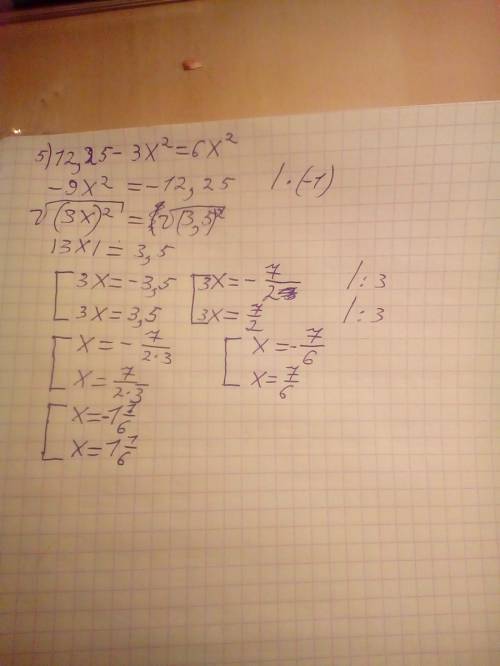 5) 12,25 - 3x² = 6x²
-9x² = -12,25 / · (-1)
√(3x)² = √(3,5)²
|3x| = 3,5
[ 3x = -3,5 [ 3x = - 7/2 / : 3
3x = 3,5 3x = 7/2 / : 3
[ x = - 7/2·3 [ x = - 7/6
x = 7/2·3 x = 7/6
[ x = -1 1/6
x = 1 1/6